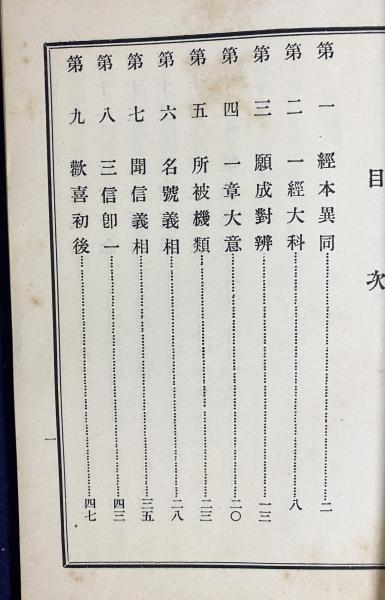 目次
第一 經本異同 二
第二 一經大科 八
第三 願成對辨 一三
第四 一章大意 二〇
第五 所被機類 二三
第六 名號義相 二八
第七 聞信義相 三五
第八 三信卽一 四三
第九 歡喜初後 四七
一